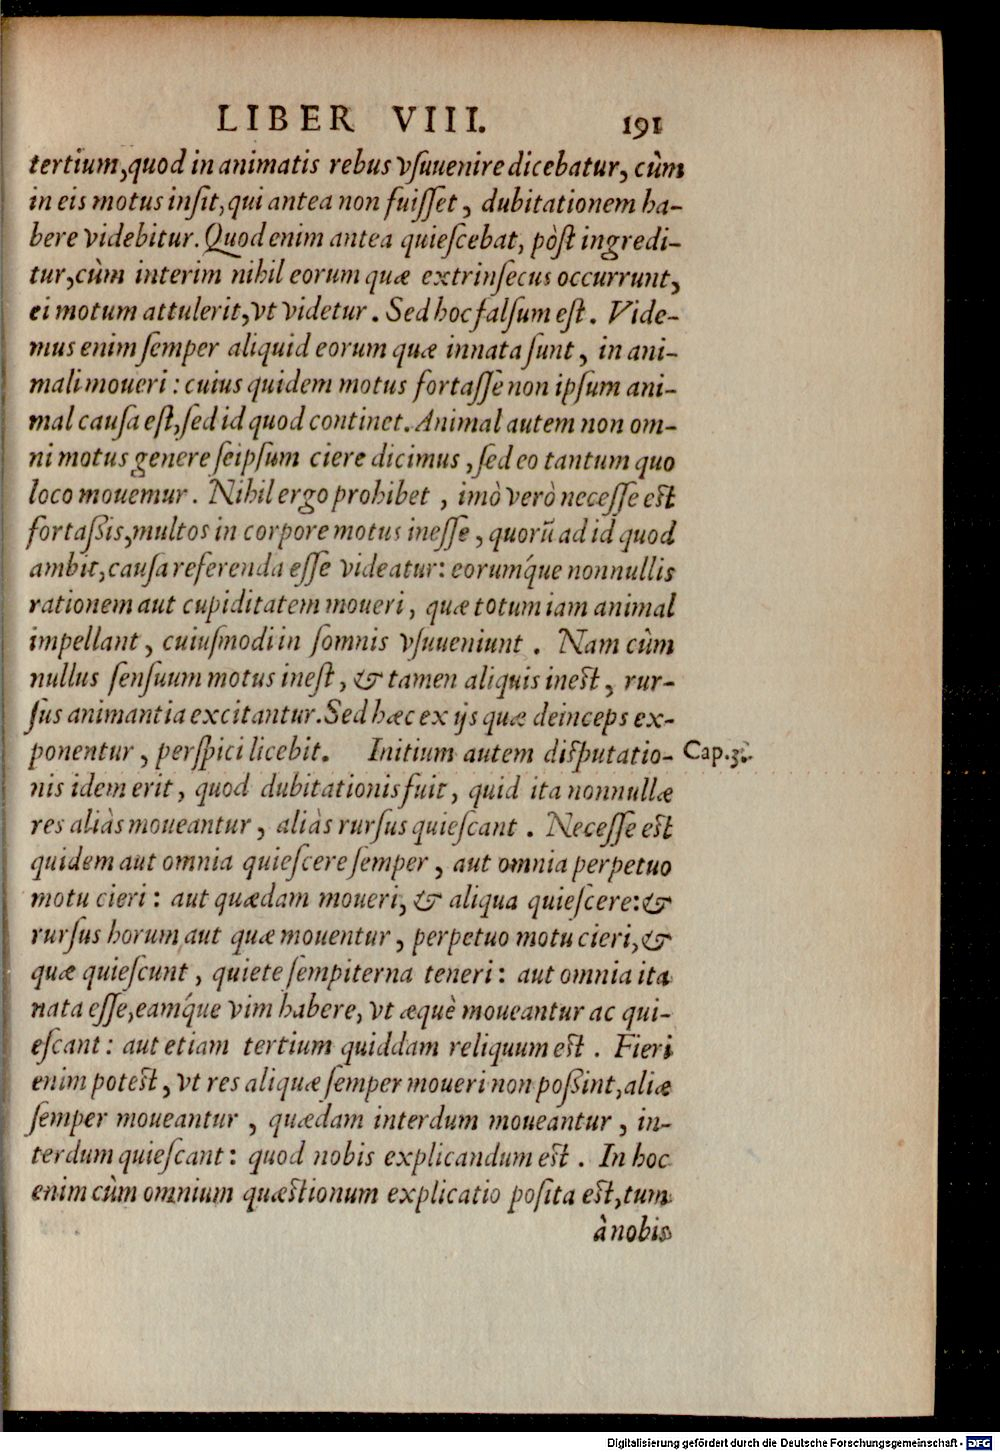 LIBER VIII. 191
tertium, quod in animatis rebus vſuuenire dicebatur, cùm
in eis motus inſit, qui antea non fuiſſet, dubitationem ha-
bere videbitur. Quod enim antea quieſcebat, pòſt ingredi-
tur, cùm interim nihil eorum quæ extrinſecus occurrunt,
ei motum attulerit, vt videtur. Sed hoc falſum eſt. Vide-
mus enim ſemper aliquid eorum quæ innata ſunt, in ani-
mali moueri: cuius quidem motus fortaſſe non ipſum ani-
mal cauſa eſt, ſed id quod continet. Animal autem non om-
ni motus genere ſeipſum ciere dicimus, ſed eo tantum quo
loco mouemur. Nihil ergo prohibet, imò verò neceſſe eſt
fortaßis, multos in corpore motus ineſſe, quorũ ad id quod
ambit, cauſa referenda eſſe videatur: eorumq́ue nonnullis
rationem aut cupiditatem moueri, quæ totum iam animal
impellant, cuiuſmodi in ſomnis vſuueniunt. Nam cùm
nullus ſenſuum motus ineſt, & tamen aliquis ineſt, rur-
ſus animantia excitantur. Sed hæc ex ijs quæ deinceps ex-
ponentur, perſpici licebit. Initium autem diſputatio- Cap. 3.
nis idem erit, quod dubitationis fuit, quid ita nonnullæ
res aliàs moueantur, aliàs rurſus quieſcant. Neceſſe eſt
quidem aut omnia quieſcere ſemper, aut omnia perpetuo
motu cieri: aut quædam moueri, & aliqua quieſcere: &
rurſus horum aut quæ mouentur, perpetuo motu cieri, &
quæ quieſcunt, quiete ſempiterna teneri: aut omnia ita
nata eſſe, eamq́ue vim habere, vt æquè moueantur ac qui-
eſcant: aut etiam tertium quiddam reliquum eſt. Fieri
enim poteſt, vt res aliquæ ſemper moueri non poßint, aliæ
ſemper moueantur, quædam interdum moueantur, in-
terdum quieſcant: quod nobis explicandum eſt. In hoc
enim cùm omnium quæſtionum explicatio poſita eſt, tum
à nobis
Digitalisierung gefördert durch die Deutsche Forschungsgemeinschaft - DFG